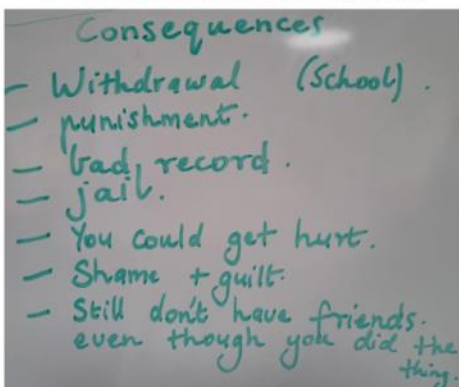 Consequences
- Withdrawal (School).
- punishment.
- bad record.
- jail.
- You could get hurt.
- Shame + guilt.
- Still don't have friends.
even though you did the
thing.